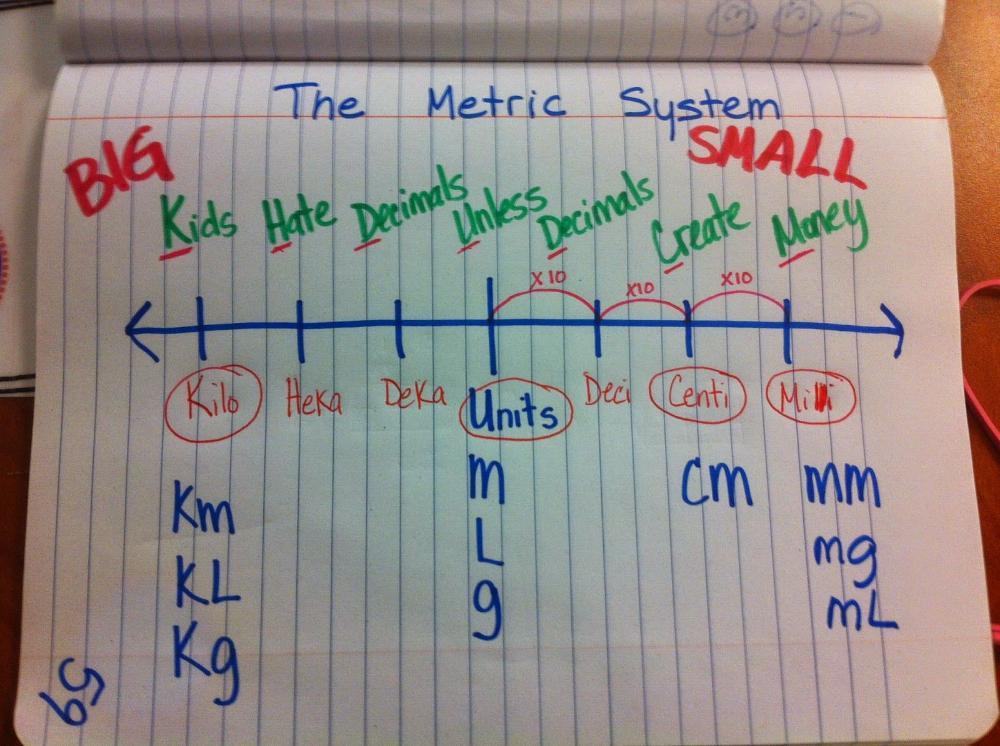 The Metric System
BIG SMALL
Kids Hate Decimals Unless Decimals Create Money
x10 x10 x10
Kilo HeKa DeKa Units Deci Centi Milli
Km m cm mm
KL L mg
Kg g mL
59